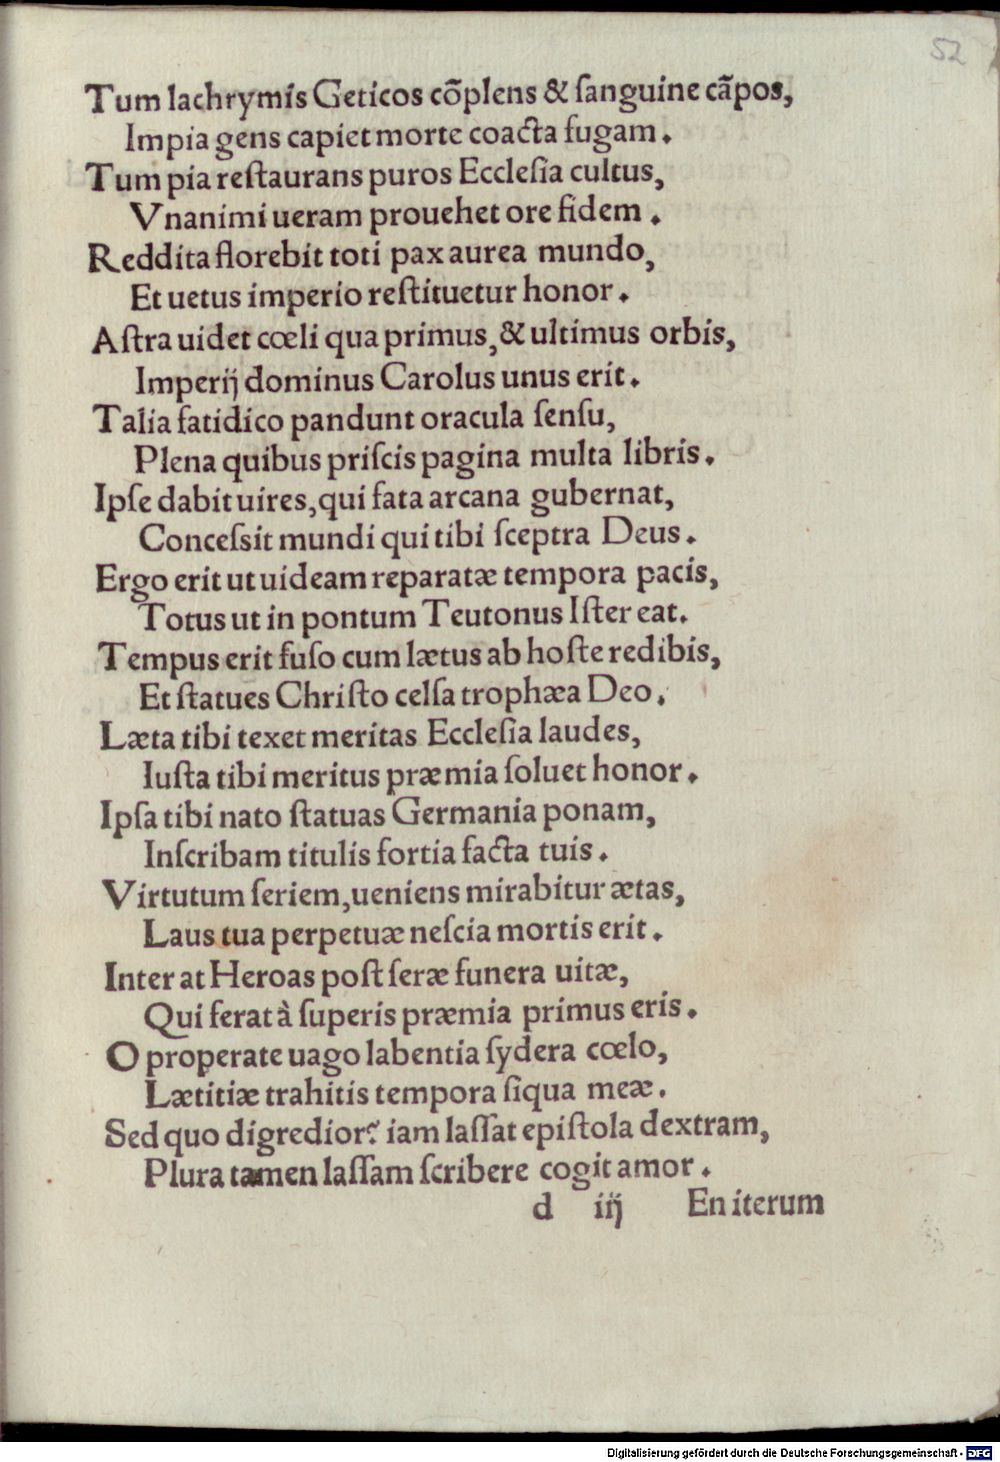 52
Tum lachrymis Geticos cõplens & ſanguine cãpos,
Impia gens capiet morte coacta fugam.
Tum pia reſtaurans puros Eccleſia cultus,
Vnanimi ueram prouehet ore fidem.
Reddita florebit toti pax aurea mundo,
Et uetus imperio reſtituetur honor.
Aſtra uidet cœli qua primus, & ultimus orbis,
Imperij dominus Carolus unus erit.
Talia fatidico pandunt oracula ſenſu,
Plena quibus priſcis pagina multa libris.
Ipſe dabit uires, qui fata arcana gubernat,
Conceſsit mundi qui tibi ſceptra Deus.
Ergo erit ut uideam reparatæ tempora pacis,
Totus ut in pontum Teutonus Iſter eat.
Tempus erit fuſo cum lætus ab hoſte redibis,
Et ſtatues Chriſto celſa trophæa Deo.
Læta tibi texet meritas Eccleſia laudes,
Iuſta tibi meritus præmia ſoluet honor.
Ipſa tibi nato ſtatuas Germania ponam,
Inſcribam titulis fortia facta tuis.
Virtutum ſeriem, ueniens mirabitur ætas,
Laus tua perpetuæ neſcia mortis erit.
Inter at Heroas poſt ſeræ funera uitæ,
Qui ferat à ſuperis præmia primus eris.
O properate uago labentia ſydera cœlo,
Lætitiæ trahitis tempora ſiqua meæ.
Sed quo digredior? iam laſſat epiſtola dextram,
Plura tamen laſſam ſcribere cogit amor.
d iij En iterum
Digitalisierung gefördert durch die Deutsche Forschungsgemeinschaft - DFG